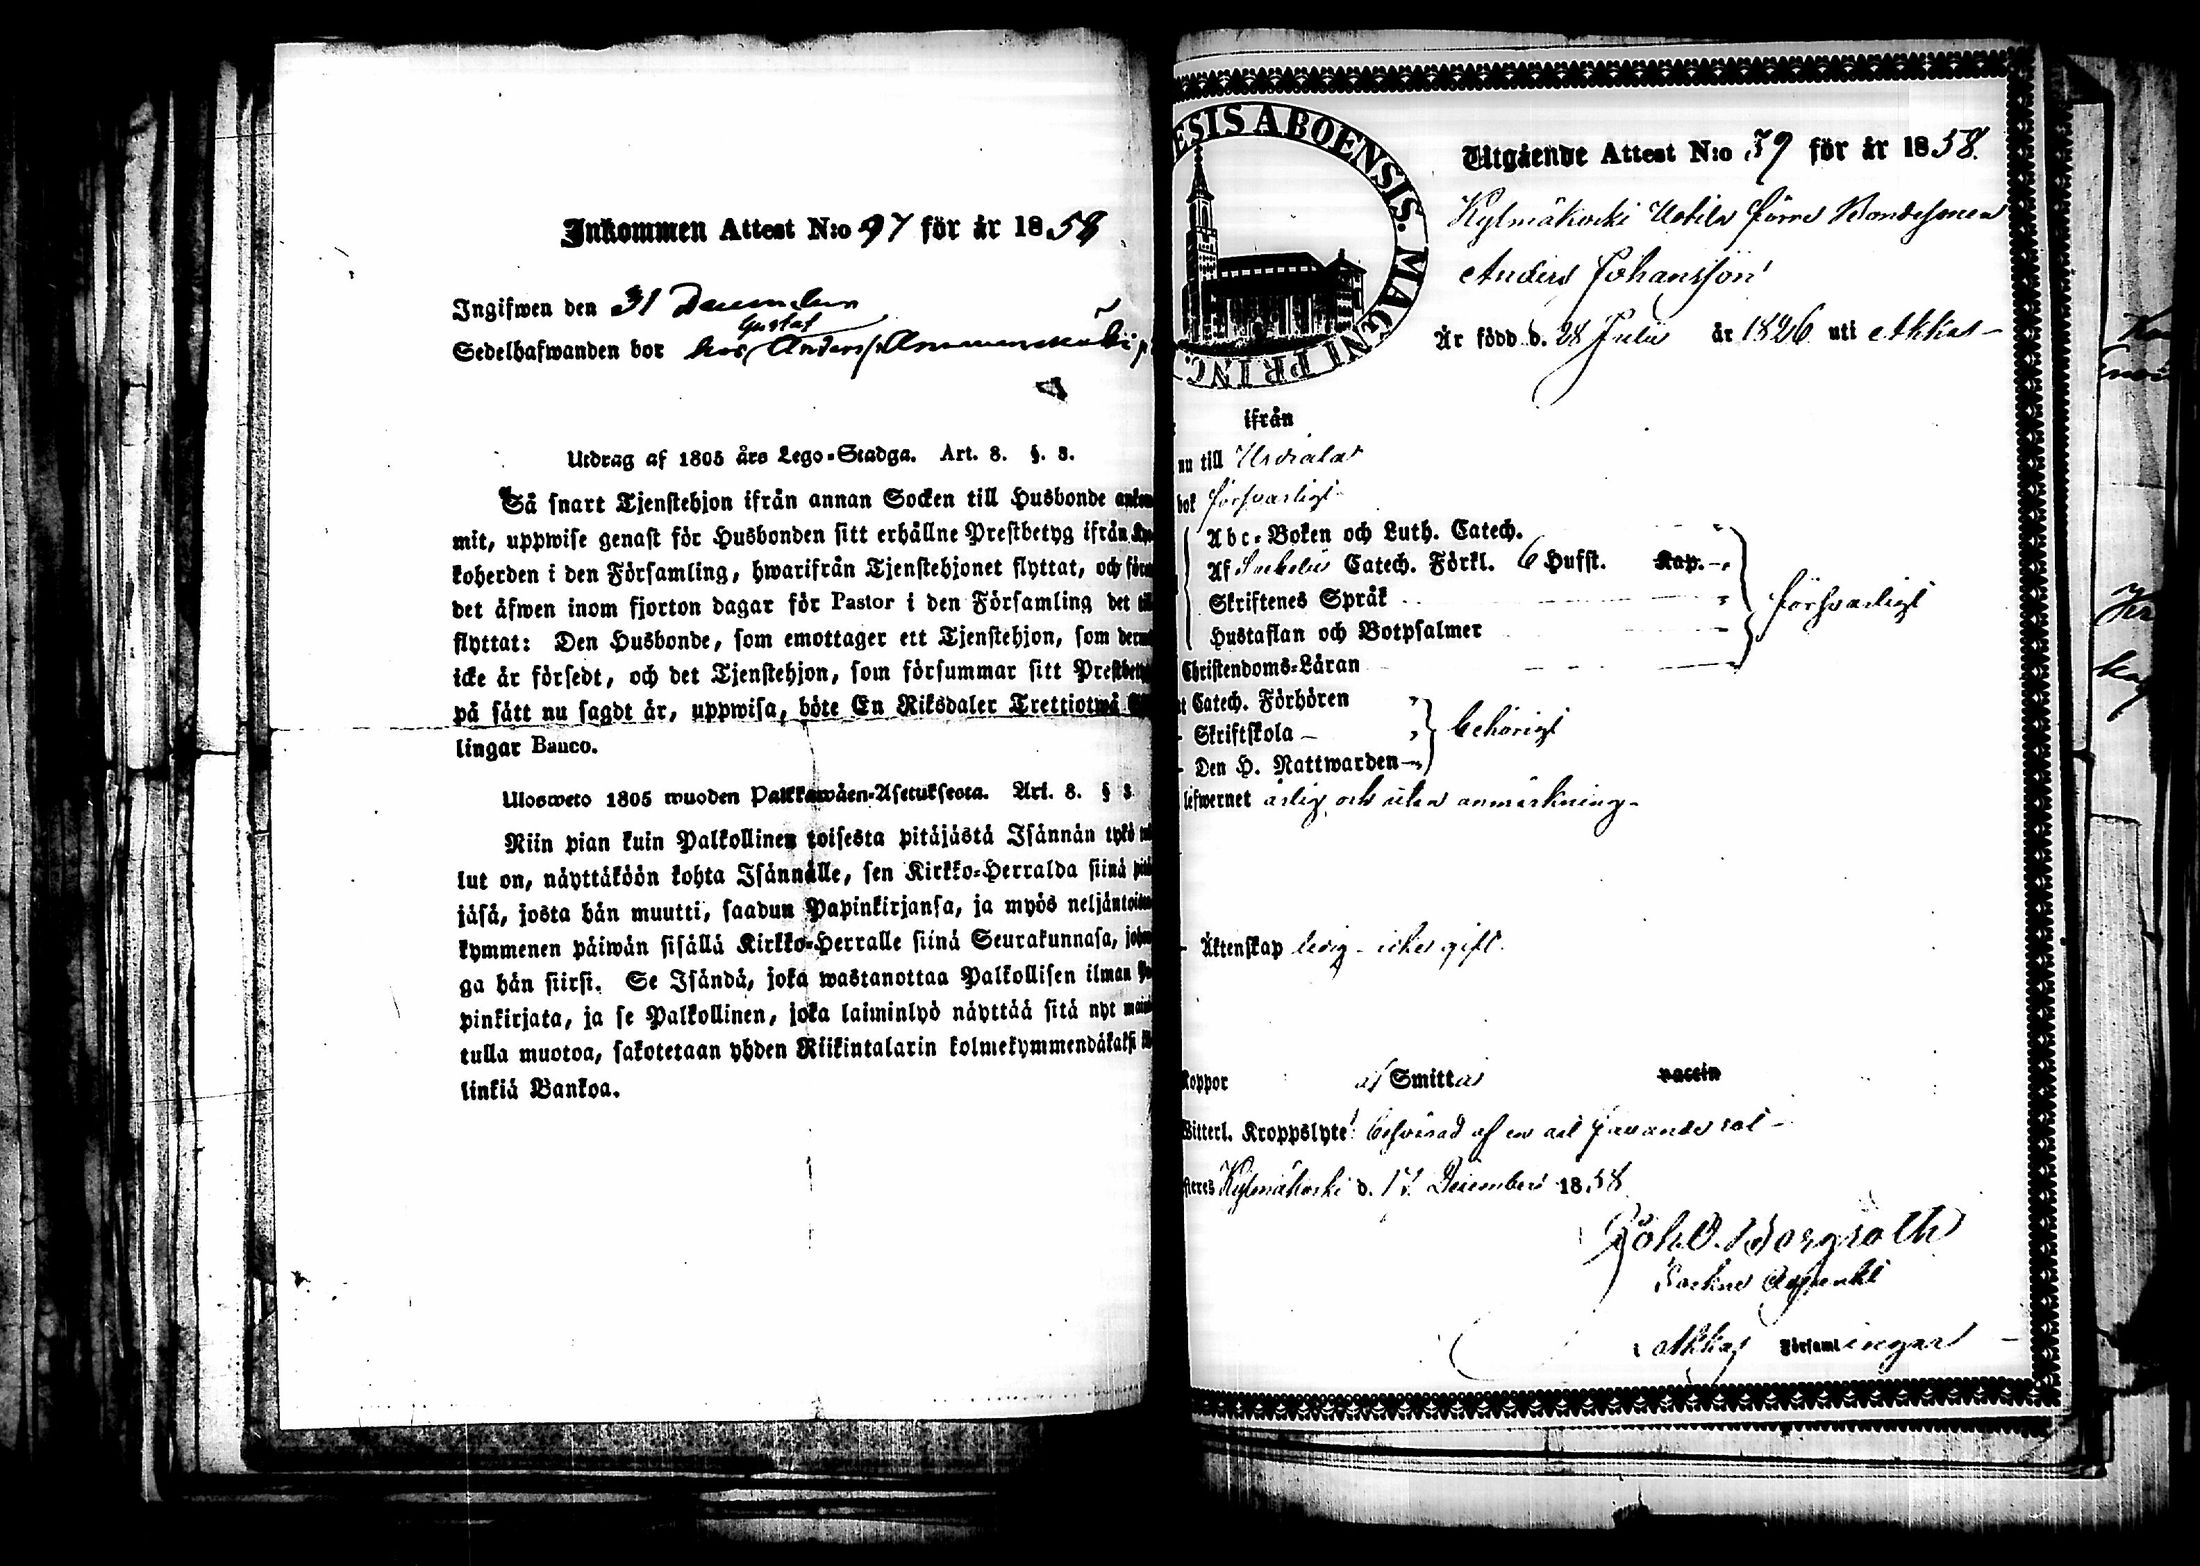 Inkommen Attest N:o 97 för år 1858
Ingifwen den 31 December
Gustaf
Sedelhafwanden bor hos Anders
Utdrag af 1805 års Lego-Stadga. Art. 8. §. 3.
Så snart Tjenstehjon ifrån annan Socken till Husbonde
mit, uppwise genast för Husbonden sitt erhållne Prestbetyg ifrån
koherden i den Församling, hwarifrån Tjenstehjonet flyttat, och
det äfwen inom fjorton dagar för Pastor i den Församling det
flyttat: Den Husbonde, som emottager ett Tjenstehjon, som
icke är försedt, och det Tjenstehjon, som försummar sitt
på sätt nu sagdt är, uppwisa, böte En Riksdaler Trettiotwå
lingar Banco.
Ulosweto 1805 wuoden Palkkawäen-Asetuksesta. Art. 8. § 3
Niin pian kuin Palkollinen toisesta pitäjästä Isännän tykö
lut on, näyttäköön kohta Isännälle, sen Kirkko-Herralda siinä
jäsä, josta hän muutti, saadun Papinkirjansa, ja myös
kymmenen päiwän sisällä Kirkko-Herralle siinä Seurakunnasa,
ga hän siirsi. Se Isändä, joka wastanottaa Palkollisen ilman
pinkirjata, ja se Palkollinen, joka laiminlyö näyttää sitä nyt
tulla muotoa, sakotetaan yhden Riikintalarin kolmekymmendäkaksi
linkiä Bankoa.
ESIS ABOENSIS. MAGNI PRINC.
Utgående Attest N:o 39 för år 1858.
Kylmäkoski Uotila förre Bondesonen
Anders Johansson
Är född d. 28 Julii år 1826 uti Akkas
ifrån
nu till Urdiala
bok försvarligt
Abc-Boken och Luth. Catech.
Af Catech. Förkl. 6 Hufst. Kap.
Skriftenes Språk
försvarligt
Hustaflan och Botpsalmer
Christendoms-Läran
Catech. Förhören
Skriftskola
behörigt
Den H. Nattwarden
lefwernet ärlig och utan anmärkning
Äktenskap ledig icke gift
Koppor af Smittas vaccin
Witterl. Kroppslyte: besvärad af en
Kylmäkoski d. 17 December 1858
Joh. O. Bergroth
Sockne Adjunkt
i Akkas Församlingar